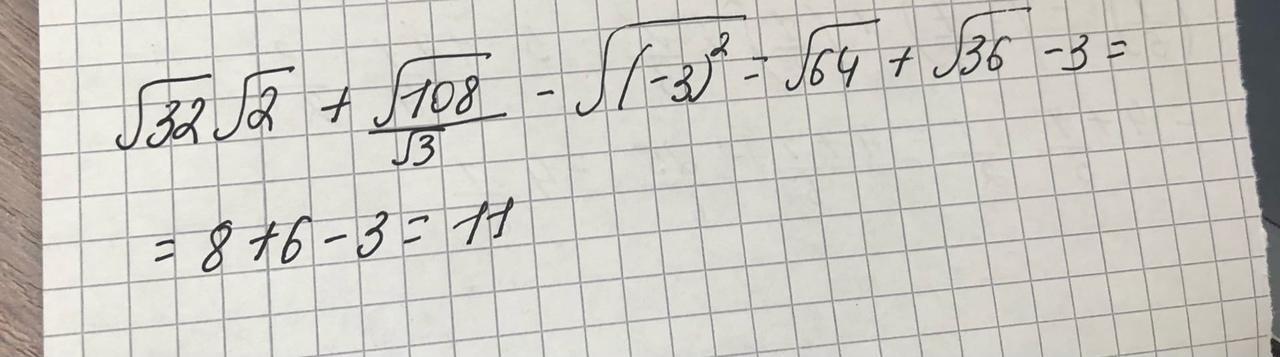 √32 √2 + √108/√3 - √(-3)² = √64 + √36 - 3 =
= 8 + 6 - 3 = 11